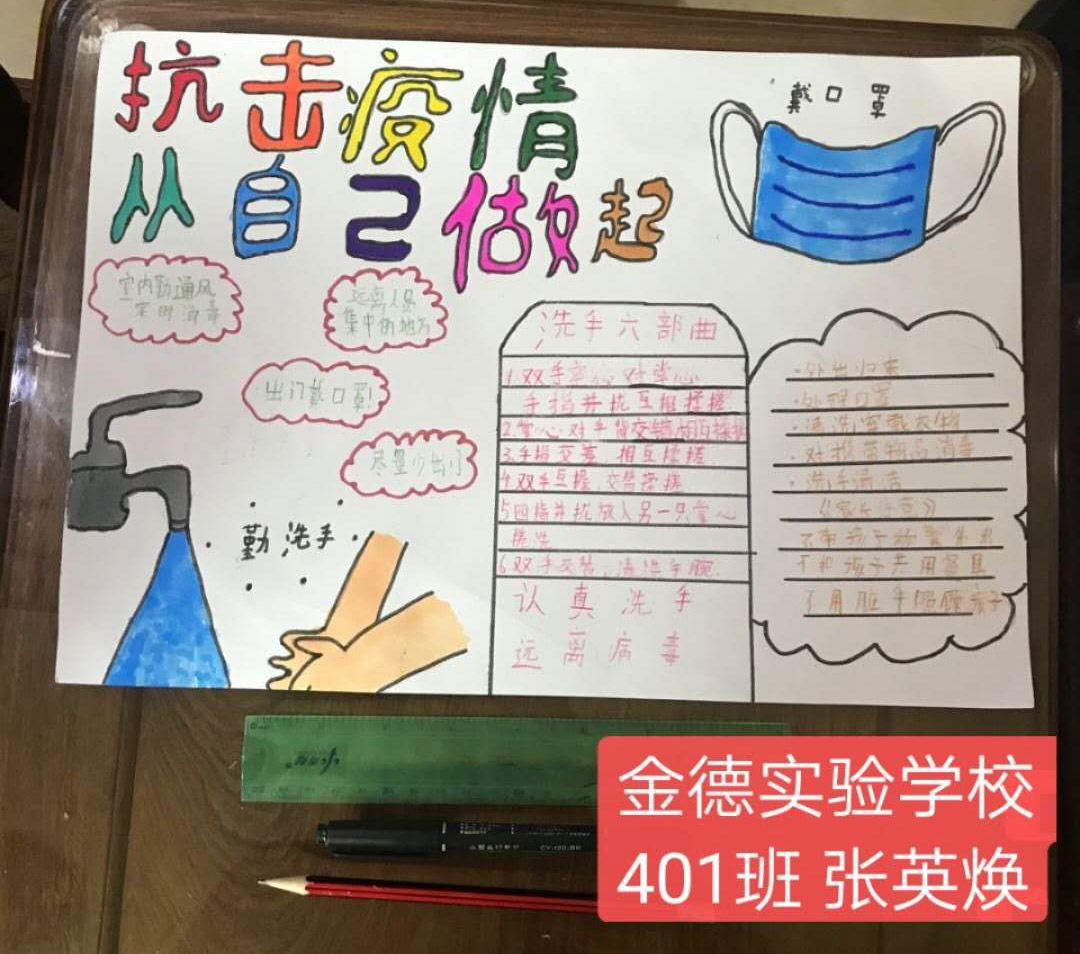 抗击疫情
从自己做起
戴口罩
室内勤通风
定时消毒
远离人员
集中的地方
出门戴口罩!
尽量少出门
勤洗手
洗手六部曲
1.双手掌心对掌心
手指并拢互相揉搓
2.掌心对手背交错相互揉搓
3.手指交叉 相互揉搓
4.双手互握 交替揉搓
5四指并拢放入另一只掌心
搓洗
6.双手交替,清洗手腕
认真洗手
远离病毒
·外出归来
·处理口罩
·清洗穿戴衣物
·对携带物品消毒
·洗手清洁
《家长注意》
不和孩子共用餐具
不用脏手
金德实验学校
401班 张英焕